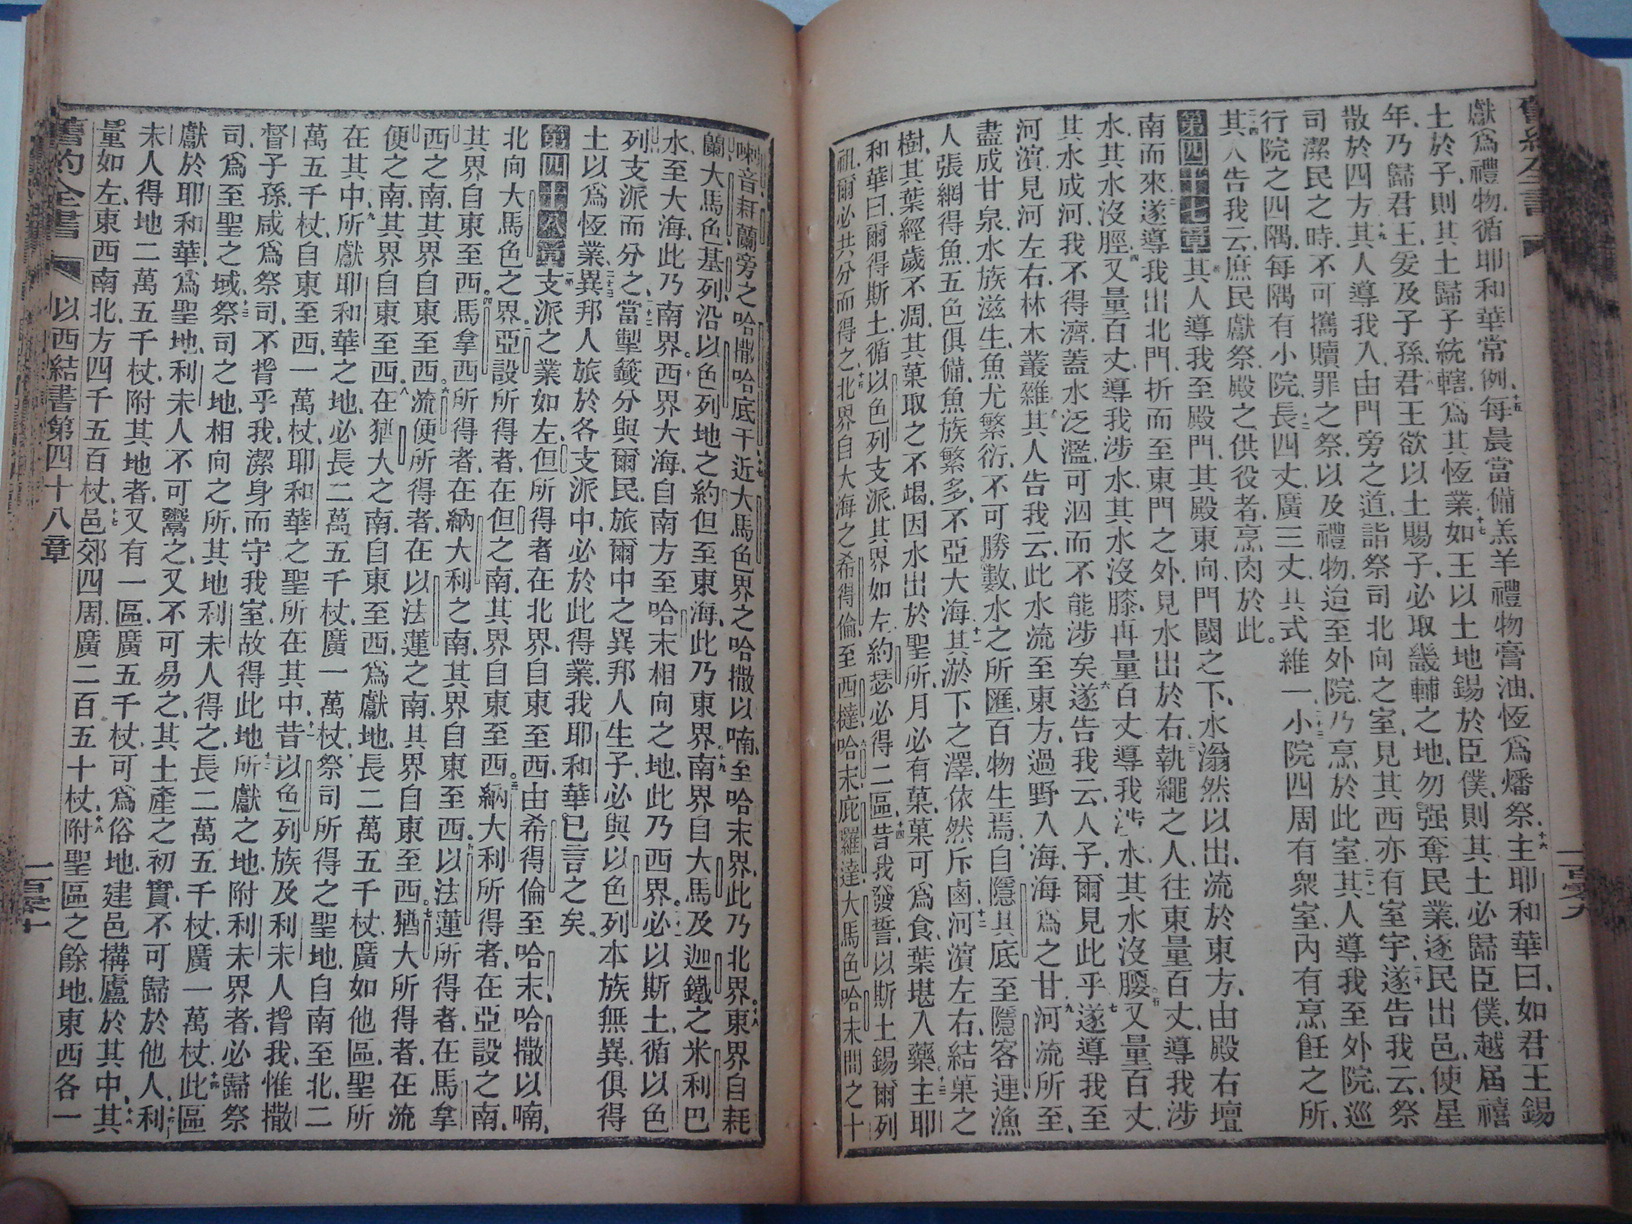 舊約全書
一百零九
獻爲禮物、循耶和華常例、十五每晨當備羔羊禮物膏油、恆爲燔祭、十六主耶和華曰、如君王錫
土於子、則其土歸子統轄、爲其恆業、十七如王以土地錫於臣僕、則其土必歸臣僕、越屆禧
年、乃歸君王、爰及子孫、君王欲以土賜子、必取畿輔之地、勿强奪民業、逐民出邑、使星
散於四方、十九其人導我入、由門旁之道、詣祭司北向之室、見其西亦有室宇、二十遂告我云、祭
司潔民之時、不可攜贖罪之祭、以及禮物、迨至外院、乃烹於此室、二十一其人導我至外院、巡
行院之四隅、每隅有小院、長四丈、廣三丈、其式維一、小院四周有衆室、內有烹飪之所、
二十四其人告我云、庶民獻祭、殿之供役者、烹肉於此。
第四十七章其人導我至殿門、其殿東向、門閾之下、水滃然以出、流於東方、由殿右壇
南而來、遂導我出北門、折而至東門之外、見水出於右、執繩之人、往東量百丈、導我涉
水、其水沒脛、四又量百丈、導我涉水、其水沒膝、再量百丈、導我涉水、其水沒腰、五又量百丈、
其水成河、我不得濟、蓋水泛濫可泅而不能涉矣、六遂告我云、人子、爾見此乎、七遂導我至
河濱、見河左右林木叢雜、八其人告我云、此水流至東方、過野入海、海爲之甘、九河流所至、
盡成甘泉、水族滋生、魚尤繁衍、不可勝數、水之所匯、百物生焉、自隱其底至隱客連漁
人張網得魚、五色俱備、魚族繁多、不亞大海、十一其淤下之澤、依然斥鹵、十二河濱左右、結菓之
樹、其葉經歲不凋、其菓取之不竭、因水出於聖所、月必有菓、菓可爲食、葉堪入藥、十三主耶
和華曰、爾得斯土、循以色列支派、其界如左、約瑟必得二區、十四昔我發誓、以斯土錫爾列
祖、爾必共分而得之、十五北界自大海之希得倫、至西撻、哈末、庇羅達、大馬色哈末間之十
喇音、耕蘭旁之哈撒哈底干、近大馬色界之哈撒以喃、至哈末界、此乃北界、十八東界自耗
蘭大馬色基列、沿以色列地之約但、至東海、此乃東界、十九南界自大馬及迦鐵之米利巴
水、至大海、此乃南界、二十西界大海、自南方至哈末相向之地、此乃西界、必以斯土、循以色
列支派而分之、二十二當掣籤分與爾民、旅爾中之異邦人生子、必與以色列本族無異、俱得
土以爲恆業、二十三異邦人旅於各支派中、必於此得業、我耶和華已言之矣。
第四十八章支派之業如左、但所得者在北界、自東至西、由希得倫至哈末、哈撒以喃、
北向大馬色之界、亞設所得者、在但之南、其界自東至西、三納大利所得者、在亞設之南、
其界自東至西、四馬拿西所得者、在納大利之南、其界自東至西、以法蓮所得者、在馬拿
西之南、其界自東至西、流便所得者、在以法蓮之南、其界自東至西、七猶大所得者、在流
便之南、其界自東至西、八在猶大之南、自東至西、爲獻地、長二萬五千杖、廣如他區、聖所
在其中、九所獻耶和華之地、必長二萬五千杖、廣一萬杖、十祭司所得之聖地、自南至北、二
萬五千杖、自東至西、一萬杖、耶和華之聖所在其中、十一昔以色列族及利未人背我、惟撒
督子孫、咸爲祭司、不背乎我、潔身而守我室、故得此地、所獻之地、附利未界者、必歸祭
司、爲至聖之域、十三祭司之地相向之所、其地利未人得之、長二萬五千杖、廣一萬杖、十四此區
獻於耶和華、爲聖地、利未人不可鬻之、又不可易之、其土產之初實、不可歸於他人、利
未人得地二萬五千杖、附其地者、又有一區、廣五千杖、可爲俗地、建邑搆廬於其中、十六其
量如左、東西南北、方四千五百杖、十七邑郊四周、廣二百五十杖、十八附聖區之餘地、東西各一
舊約全書
以西結書第四十八章
一百零十